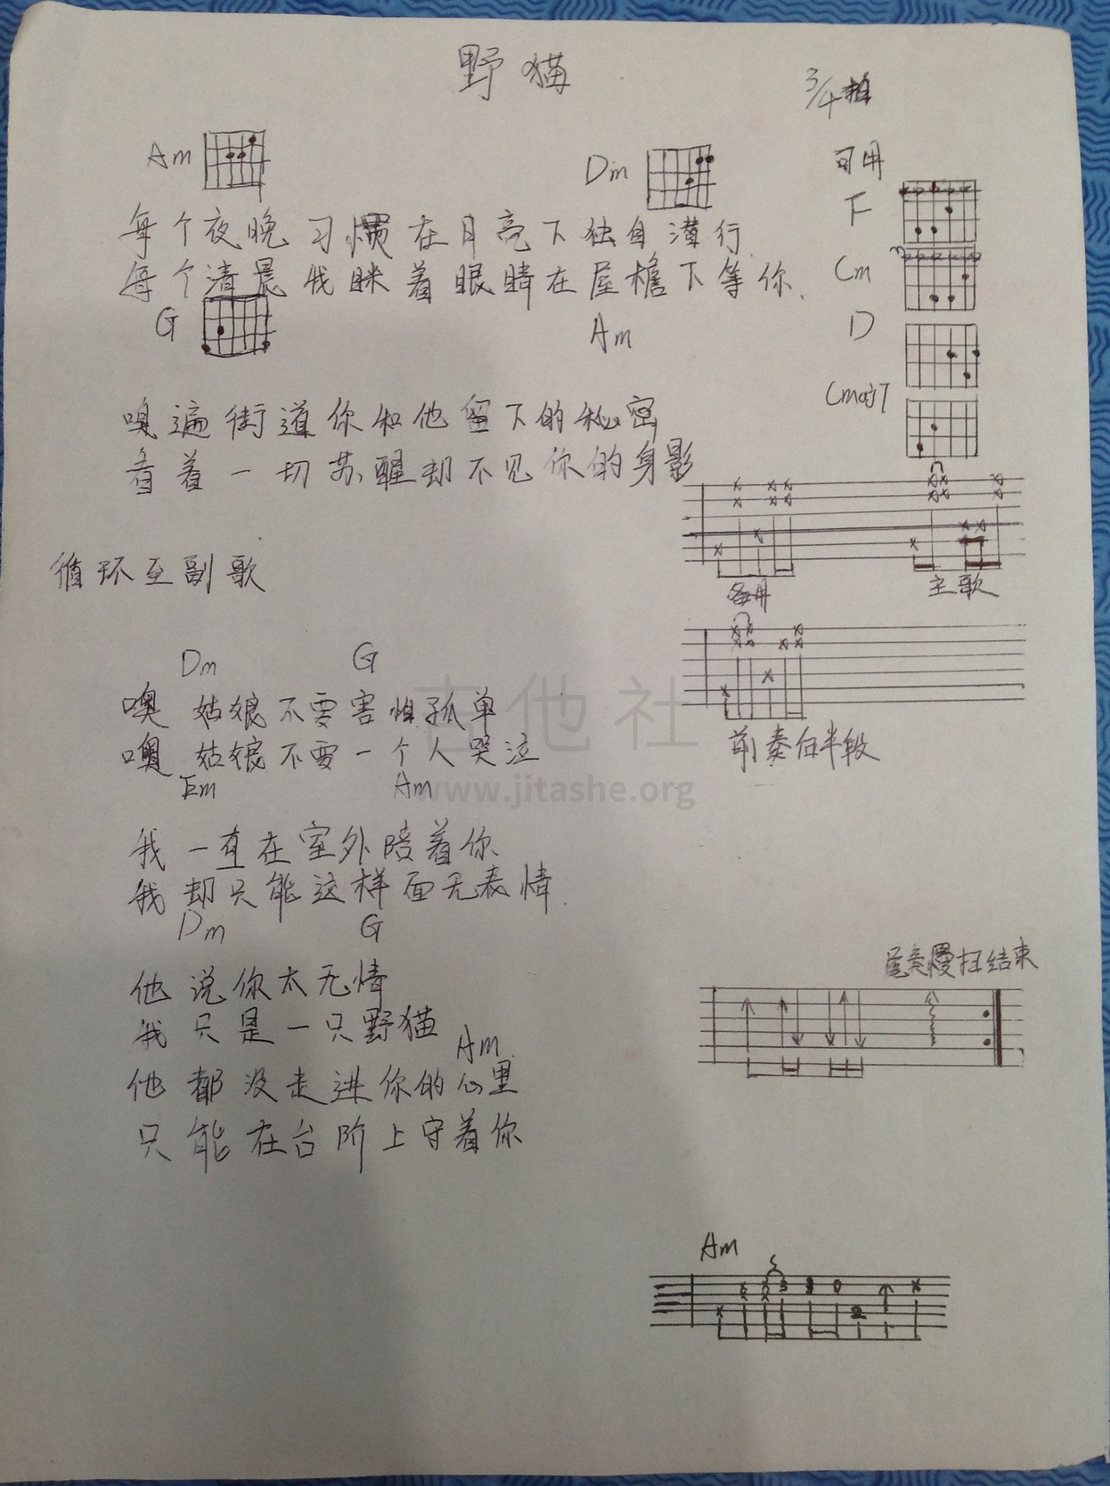 野猫
3/4拍
Am
Dm
可用
F
每个夜晚 习惯在月亮下独自潜行
每个清晨 我眯着眼睛在屋檐下等你.
Cm
G
Am
D
Cmaj7
嗅遍街道你和他留下的秘密
看着一切苏醒却不见你的身影
循环至副歌
备用
主歌
Dm G
噢 姑娘不要害怕孤单
噢 姑娘不要一个人哭泣
Em Am
前奏后半段
吉他社
www.jitashe.org
我一直在室外陪着你
我却只能这样面无表情.
Dm G
尾奏慢扫结束
他说你太无情
我只是一只野猫
Am
他都没走进你的心里
只能在台阶上守着你
Am
S
3 3 0
2